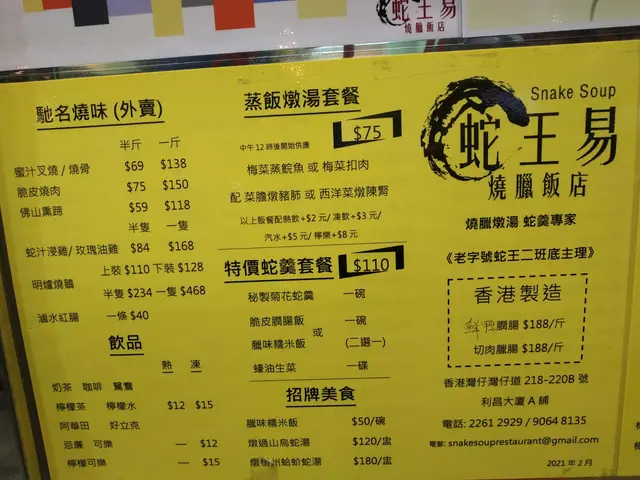 蛇王易
燒臘飯店
馳名燒味 (外賣)
半斤 一斤
蜜汁叉燒/ 燒骨 $69 $138
脆皮燒肉 $75 $150
佛山熏蹄 $59 $118
半隻 一隻
蛇汁浸雞/ 玫瑰油雞 $84 $168
上裝 $110 下裝 $128
明爐燒鵝
半隻 $234 一隻 $468
滷水紅腸 一條 $40
飲品
熱 凍
奶茶 咖啡 鴛鴦
檸檬茶 檸檬水 $12 $15
阿華田 好立克
忌廉 可樂 — $12
檸檬可樂 — $15
蒸飯燉湯套餐
中午12時後開始供應 $75
梅菜蒸鯇魚 或 梅菜扣肉
配 菜膽燉豬肺 或 西洋菜燉陳腎
以上飯餐配熱飲+$2元/ 凍飲+$3元/
汽水+$5元/ 檸樂+$8元
特價蛇羹套餐 $110
秘製菊花蛇羹 一碗
脆皮膶腸飯 一碗
或
臘味糯米飯 (二選一)
蠔油生菜 一碟
招牌美食
臘味糯米飯 $50/碗
燉過山烏蛇湯 $120/盅
燉梧州蛤蚧蛇湯 $180/盅
Snake Soup
蛇王易
燒臘飯店
燒臘燉湯 蛇羹專家
《老字號蛇王二班底主理》
香港製造
鮮鴨膶腸 $188/斤
切肉臘腸 $188/斤
香港灣仔灣仔道 218-220B 號
利昌大廈 A 舖
電話: 2261 2929 / 9064 8135
電郵: snakesouprestaurant@gmail.com
2021 年 2 月